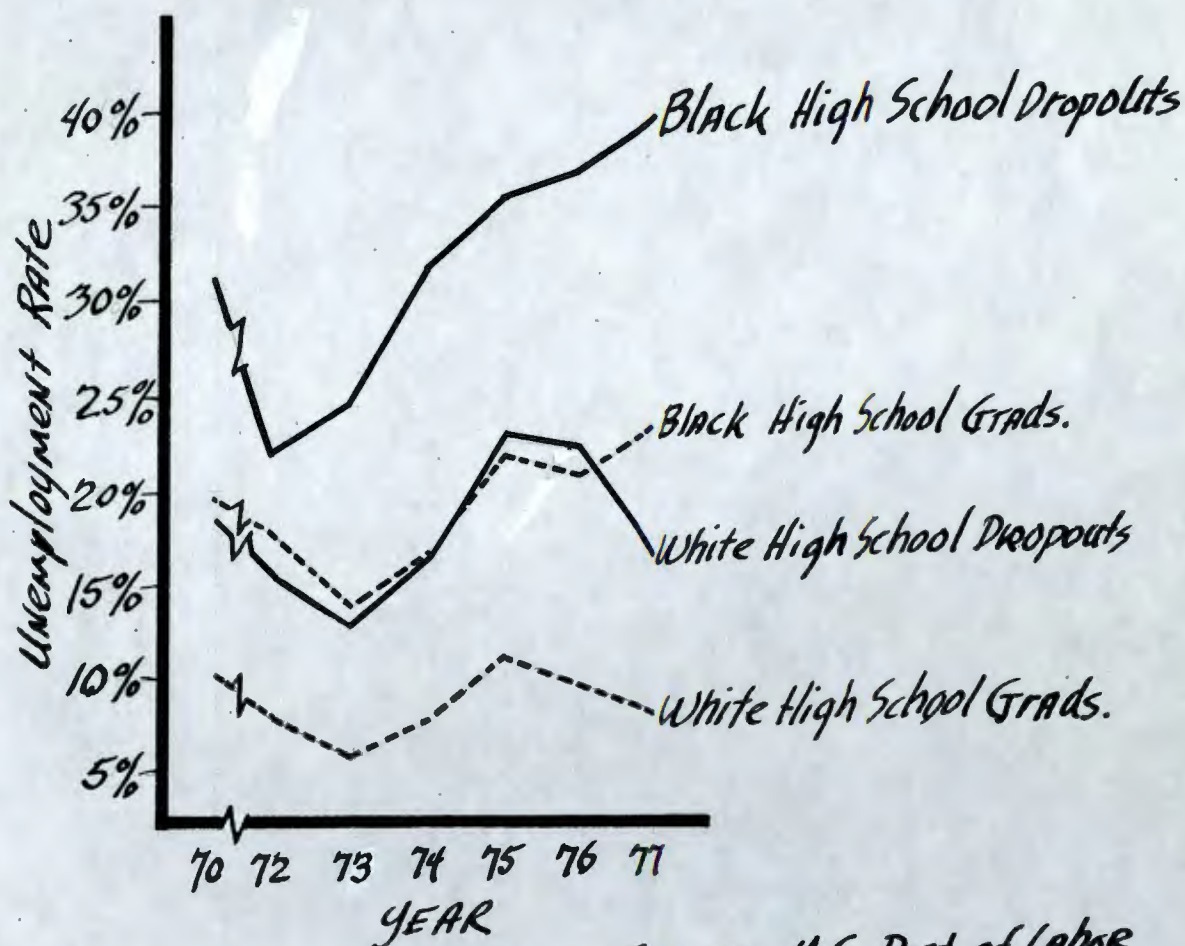 40%
35%
30%
25%
20%
15%
10%
5%
Unemployment Rate
Black High School Dropouts
Black High School Grads.
White High School Dropouts
White High School Grads.
70 72 73 74 75 76 77
YEAR
U.S. Dept. of Labor